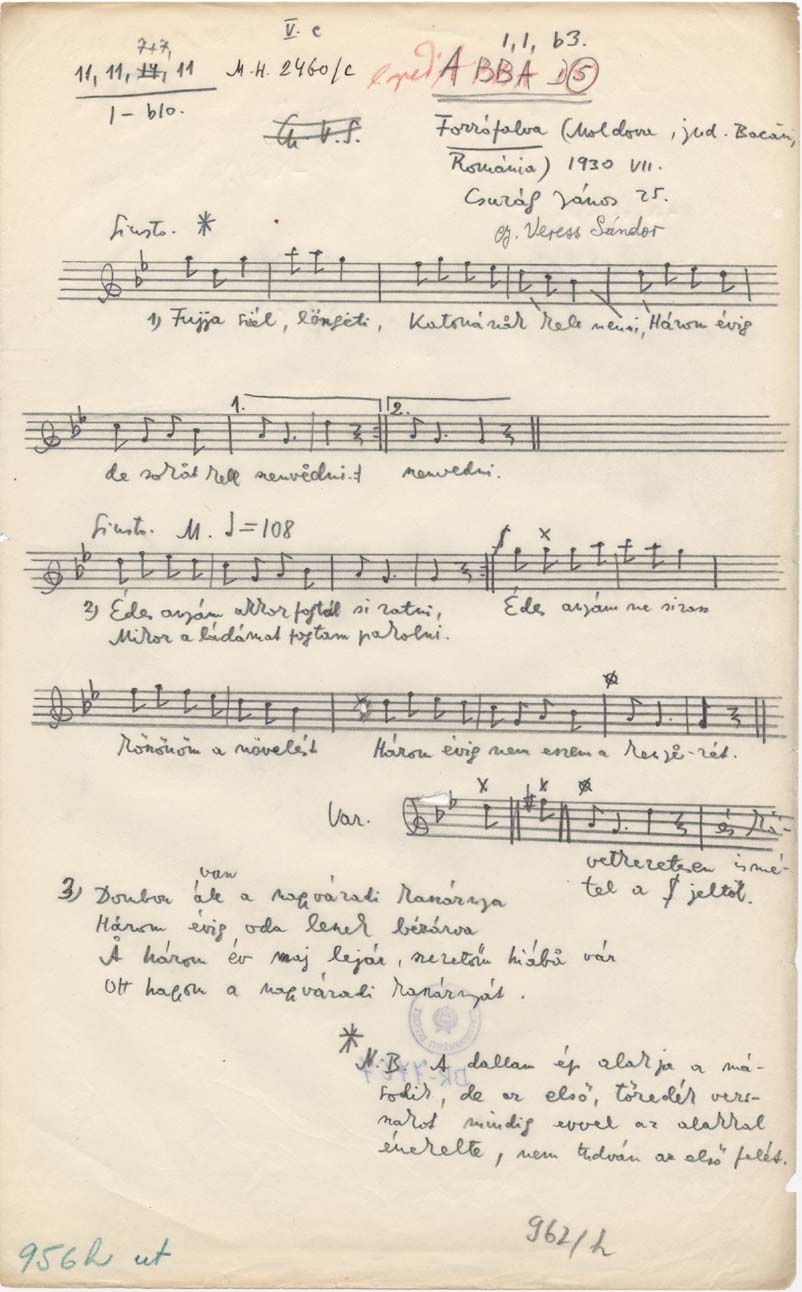 V. c
7+7,
1, 1, b3.
11, 11, 14, 11
M.H. 2460/c
ABBA
5
1 – b10.
Forrófalva (Moldova, jud. Bacău,
Románia) 1930 VII.
Csurág János 25.
gy. Veress Sándor
Giusto. *
1) Fujja szél, löngeti, Katonának kele menni, Három évig
1. 2.
de sokåt kell szenvedni. szenvedni.
Giusto. M. ♩=108
x
2) Édes anyám akkor fogtál siratni, Édes anyám ne sirass
Mikor a ládámat fogtam pakolni.
Köszönöm a növelést Három évig nem eszem a kenyerét.
Var. x x és kö-
vetkezetesen ismé-
tel a jeltől.
van
3) Dombon a nagyváradi kaszárnya
Három évig oda leszek bézárva
Å három év maj lejár, szeretőm hiábå vár
Ott hagyom a nagyváradi kaszárnyát.
*
N.B. A dallam ép alakja a má-
sodik, de az első, töredék vers-
szakot mindig evvel az alakkal
énekelte, nem tudván az első felét.
962/h
956h ut